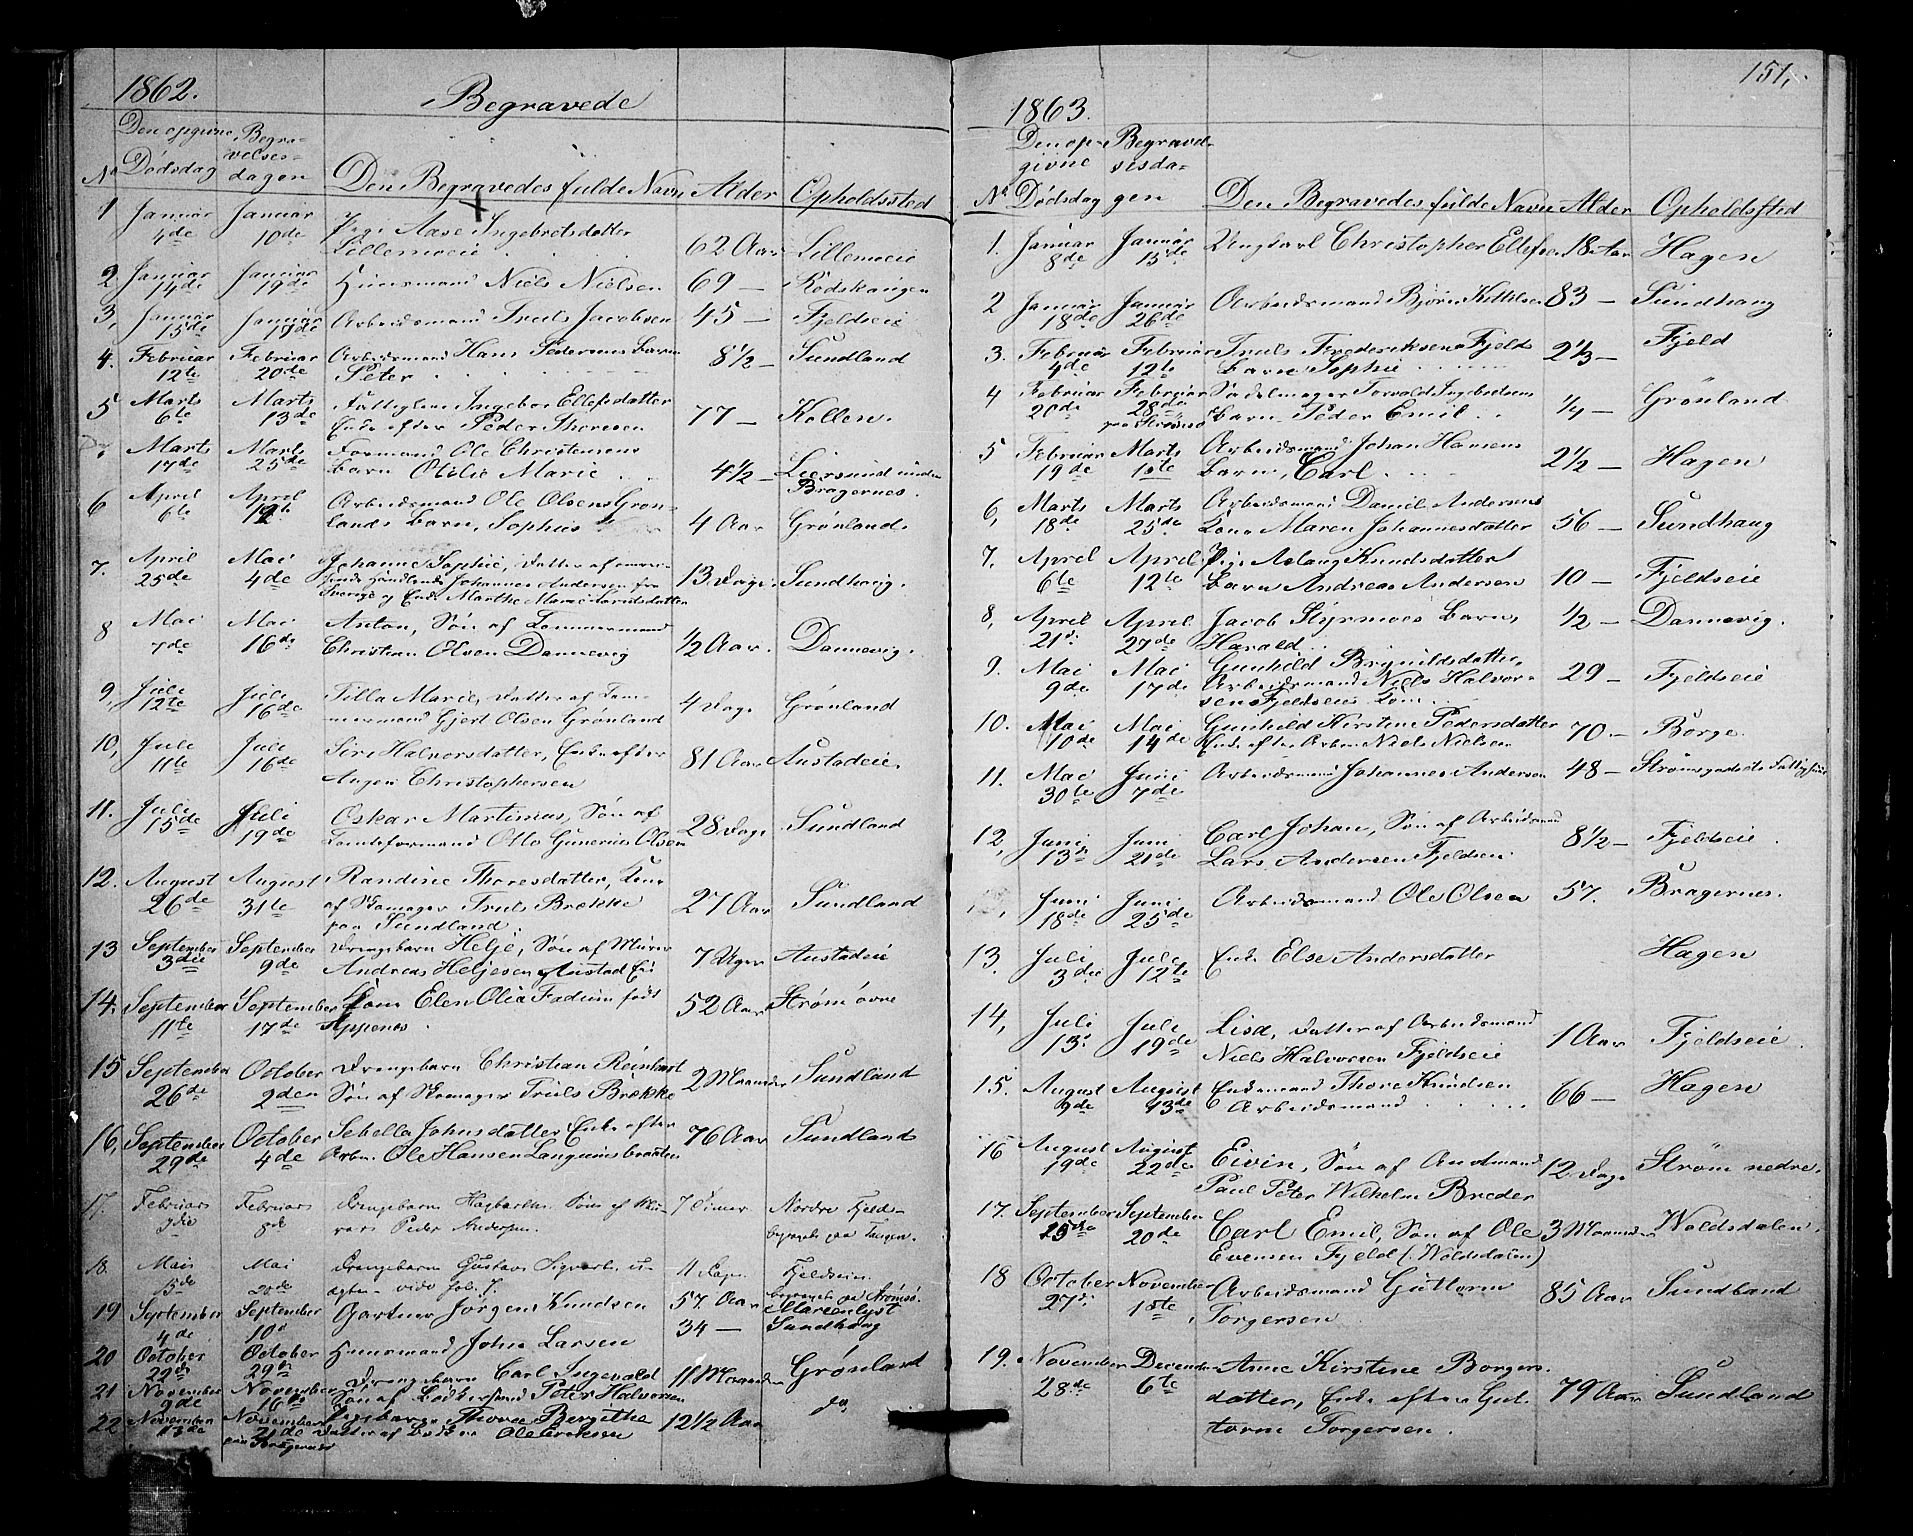 1862.
Begravede
No
Den opgivne Dødsdag
Begravelsesdagen
Den Begravedes fulde Navn
Alder
Opholdssted
1 Januar 4de Januar 10de Pige Aase Ingebretsdatter
Lillemoeie 62 Aar Lillemoeie
2 Januar 14de Januar 19de Huusmand Niels Nielsen 69 —
3, Januar 15de Januar 19de Arbeidsmand Truls Jacobsen 45 — Fjeldseie
4. Februar 12te Februar 20de Arbeidsmand Hans Pedersens Barn
Peter 8 1/2 — Sundland
5 Marts 6te Marts 13de Fattiglem Ingebor Ellefsdatter
Enke efter Peder Thoresen 77 — Kollen.
Marts 17de Marts 25de Formand Ole Christensens
Barn Otilie Marie 4 1/2 — Liersund under
Bragernes.
6 April 6te April 12te Arbeidsmand Ole Olsens Grøn-
lands Barn, Sophus 4 Aar Grønland.
7. April 25de Mai 4de Johanne Sophie, Datter af
Johannes Andersen fra
Sverige og Enke Marthe Marie 13 Dage Sundhaug.
8 Mai 7de Mai 16de Anton, Søn af Tømmermand
Christian Olsen Dannevig 1/2 Aar. Dannevig.
9, Juli 12te Juli 16de Tilla Marie, Datter af Tøm-
mermand Gjert Olsen Grønland 4 Dage Grønland
10, Juli 11te Juli 16de Siri Halvorsdatter, Enke efter
Aagen Christophersen 81 Aar Austadeie.
11. Juli 15de Juli 19de Oskar Martinus, Søn af
Tomteformand Otto Gunerius Olsen 28 Dage Sundland
12. August 26de August 31te Randine Thoresdatter, Kone
af Skomager Truls Brække
paa Sundland. 27 Aar Sundland
13 September 3die September 9de Drengebarn Helje, Søn af Murer
Andreas Heljesen Austad Eie 7 Uger Austadeie
14, September 11te September 17de Kone Elen Olea Fadum født
Appenes. 52 Aar Strøm øvre
15 September 26de October 2den Drengebarn Christian Reinhart
Søn af Skomager Truls Brække 2 Maaneder Sundland
16, September 29de October 4de Sebella Johnsdatter Enke efter
Arbm. Ole Hansen Langumsbraaten 76 Aar Sundland
17. Februar 7die Februar 8de Drengebarn Hagbarth Søn af Mu-
rer Peder Andersen. 7 Timer Nordre Fjeld
begravet paa Tangen.
18. Mai 5de Mai Drengebarn Gustav Sigvart u-
ægte 11 Dage Fjeldseie.
begravet paa Strømsø.
19 September 4de September 10d Gartner Jørgen Knudsen 57. Aar Marienlyst
20 October 22de October 29de Huusmand John Larsen 34 — Sundhaug
21 November 9de November 16de Drengebarn Carl Ingevald
Søn af Peter Halvorsen 11 Maaneder Grønland
22 November 13de November 21de
paa Bragernes Pigebarn Thora Bergithe
Datter af Ole Eriksen 12 1/2 Aar do
151.
1863.
No
Den op-
givne
Dødsdag
Begravel-
sesda-
gen
Den Begravedes fulde Navn
Alder
Opholdssted
1. Januar 8de Januar 15de Ungkarl Christopher Ellefsen 18 Aar Hagen
2 Januar 18de Januar 26de Arbeidsmand Bjørn Kittelsen 83 — Sundhaug
3. Februar 4de Februar 12te Truls Frederiksen Fjelds
Barn Sophie 2 1/3 — Fjeld
4 Februar 20de Februar 28de
paa Strømsø Sadelmager Torvald Ingebretsens
Barn Peder Emil 1/4 — Grönland
5 Februar 19de Marts 1ste Arbeidsmand Johan Hansens
Barn, Carl. 2 1/2 — Hagen
6, Marts 18de Marts 25de Arbeidsmand Daniel Andersens
Kone Maren Johannesdatter 56 — Sundhaug
7, April 6te April 12te Pige Aslaug Knudsdatters
Barn Andreas Andersen 10 — Fjeldseie
8, April 21de April 27de Jacob Styrmoes Barn,
Harald 1/2 — Dannevig.
9. Mai 9de Mai 17de Gunhild Brynildsdatter,
Arbeidsmand Niels Halvor-
sen Fjeldseies Kone 29 — Fjeldseie
10. Mai 10de Mai 14de Gunhild Kirstine Pedersdatter
Enke efter Arbm Niels Nielsen 70. — Børge.
11. Mai 30te Juni 7de Arbeidsmand Johannes Andersen 48 — Strømsgodsets Fattighuus
12, Juni 13de Juni 21de Carl Johan, Søn af Arbeidsmand
Lars Andersen Fjeldseie 8 1/2 — Fjeldseie.
Juni 18de Juni 25de Arbeidsmand Ole Olsen 57. Bragernes.
13. Juli 3die Juli 12te Enke Else Andersdatter Hagen
14, Juli 13de Juli 19de Lisa, Datter af Arbeidsmand
Niels Halvorsen Fjeldseie 1 Aar Fjeldseie.
15. August 9de August 13de Enkemand Thore Knudsen
Arbeidsmand 66 — Hagen
16 August 19de August 22de Eivin, Søn af
Paul Peter Wilhelm Breder 12. Dage Strøm nedre.
17. September 15de September 20de Carl Emil, Søn af Ole
Evensen Fjeld (: Woldsdalen) 3 Maaneder Woldsdalen.
18 October 27de November 1ste Arbeidsmand Guttorm
Torgersen 85 Aar Sundland
19. November 28de December 6te Anne Kirstine Borgers-
datter, Enke efter Gut-
torm Torgersen. 79 Aar Sundland